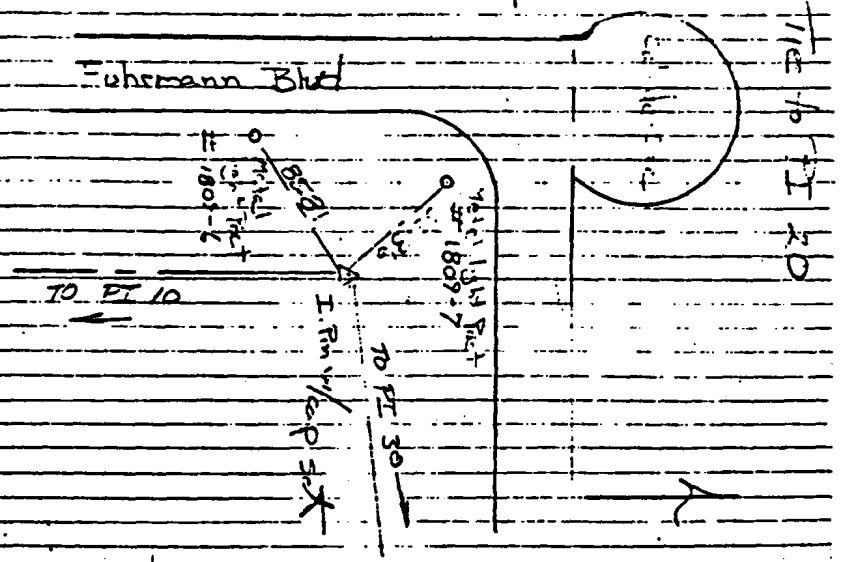 Fuhrmann Blvd
TIE to PI 20
Metal
Light Post
# 1809-6
85.8'
Metal light Post
# 1809-7
TO PT 10
I. Pin w/cap Set
TO PI 30